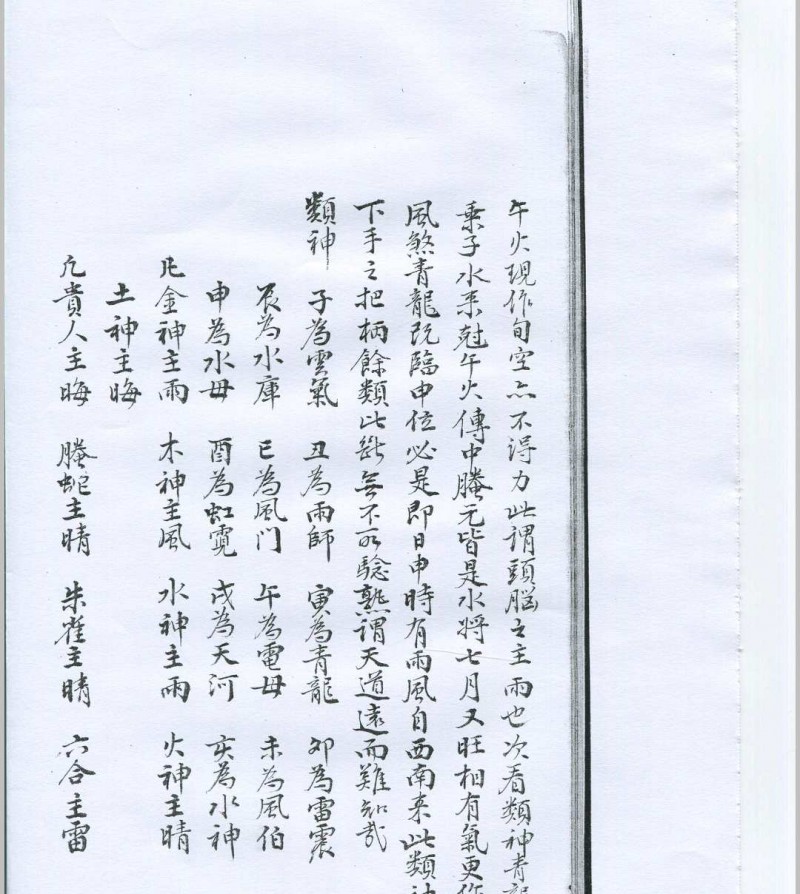 午火現作旬空亦不得力此謂頭腦之主雨也次看類神青龍
乘子水來尅午火傳中螣元皆是水將七月又旺相有氣更作
風煞青龍既臨申位必是即日申時有雨風自西南来此類神
下手之把柄餘類此断無不所驗孰謂天道遠而難知哉
類神 子為雲氣 丑為雨師 寅為青龍 卯為雷震
辰為水庫 巳為風门 午為電母 未為風伯
申為水母 酉為虹霓 戌為天河 亥為水神
凡金神主雨 木神主風 水神主雨 火神主晴
土神主晦
凡貴人主晦 螣蛇主晴 朱雀主晴 六合主雷